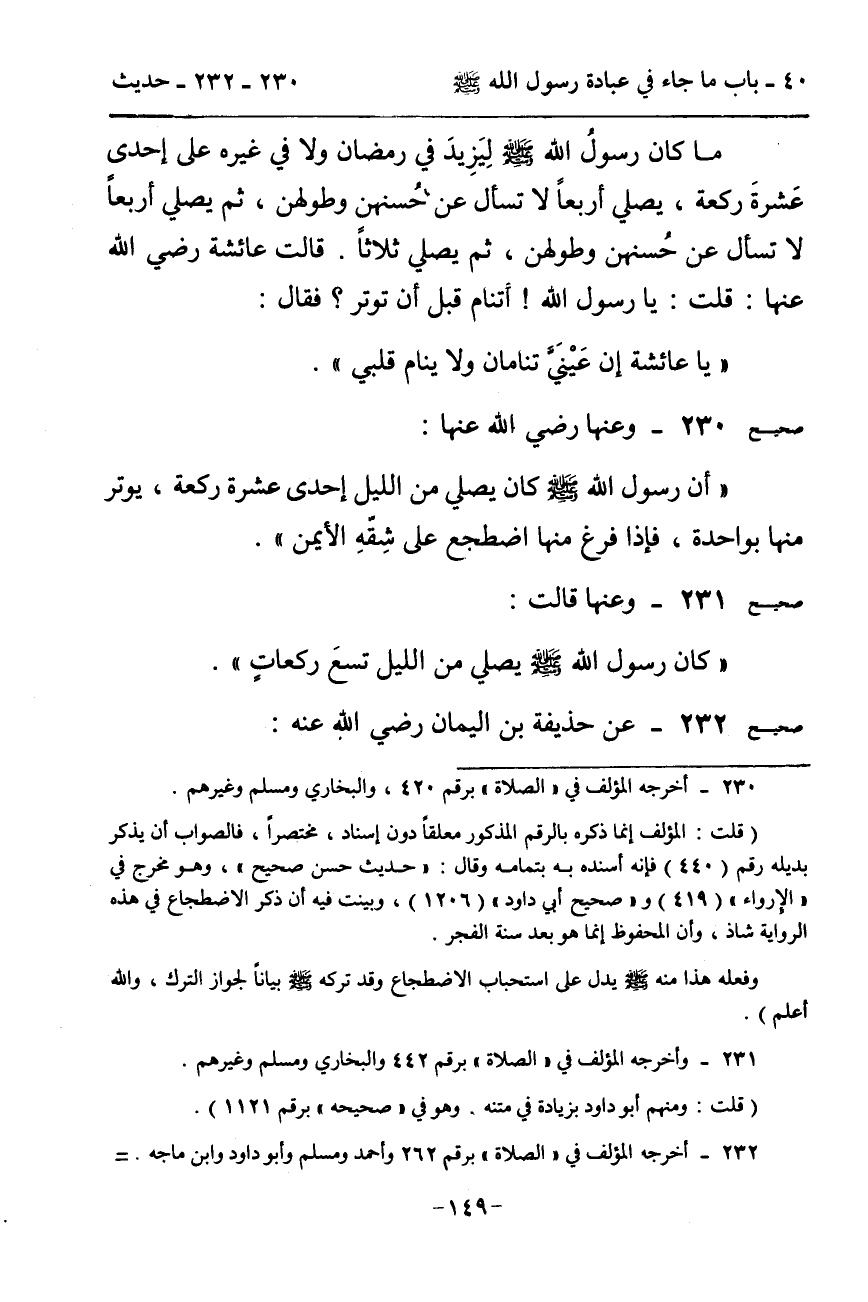 ٤٠ ـ باب ما جاء في عبادة رسول الله ﷺ ٢٣٠ ـ ٢٣٢ ـ حديث
مـا كان رسولُ الله ﷺ لِيَزِيدَ في رمضان ولا في غيره على إحدى
عَشرةَ ركعة ، يصلي أربعاً لا تسأل عن حُسنهن وطولهن ، ثم يصلي أربعاً
لا تسأل عن حُسنهن وطولهن ، ثم يصلي ثلاثاً . قالت عائشة رضي الله
عنها : قلت : يا رسول الله ! أتنام قبل أن توتر ؟ فقال :
« يا عائشة إن عَيْنَيَّ تنامان ولا ينام قلبي » .
صحيـح ٢٣٠ ـ وعنها رضي الله عنها :
« أن رسول الله ﷺ كان يصلي من الليل إحدى عشرة ركعة ، يوتر
منها بواحدة ، فإذا فرغ منها اضطجع على شِقّهِ الأيمن » .
صحيـح ٢٣١ ـ وعنها قالت :
« كان رسول الله ﷺ يصلي من الليل تسعَ ركعاتٍ » .
صحيـح ٢٣٢ ـ عن حذيفة بن اليمان رضي الله عنه :
٢٣٠ ـ أخرجه المؤلف في « الصلاة » برقم ٤٢٠ ، والبخاري ومسلم وغيرهم .
( قلت : المؤلف إنما ذكره بالرقم المذكور معلقاً دون إسناد ، مختصراً ، فالصواب أن يذكر
بديله رقم ( ٤٤٠ ) فإنه أسنده بـه بتمامـه وقال : « حـديث حسن صحيح » ، وهـو مخرج في
« الإرواء » ( ٤١٩ ) و « صحيح أبي داود » ( ١٢٠٦ ) ، وبينت فيه أن ذكر الاضطجاع في هذه
الرواية شاذ ، وأن المحفوظ إنما هو بعد سنة الفجر .
وفعله هذا منه ﷺ يدل على استحباب الاضطجاع وقد تركه ﷺ بياناً لجواز الترك ، والله
أعلم ) .
٢٣١ ـ وأخرجه المؤلف في « الصلاة » برقم ٤٤٢ والبخاري ومسلم وغيرهم .
( قلت : ومنهم أبو داود بزيادة في متنه . وهو في « صحيحه » برقم ١١٢١ ) .
٢٣٢ ـ أخرجه المؤلف في « الصلاة » برقم ٢٦٢ وأحمد ومسلم وأبو داود وابن ماجه . =
-١٤٩-